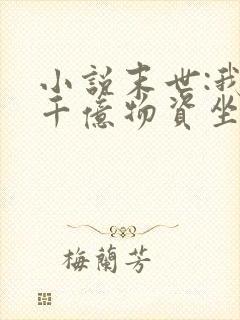 小説末世:我
千億物資坐
梅蘭芳